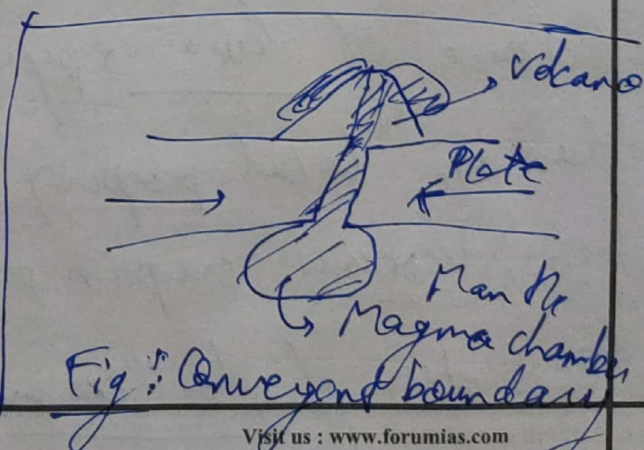 Volcano
Plate
Mantle
Magma chamber
Fig : Convergent boundary
Visit us : www.forumias.com